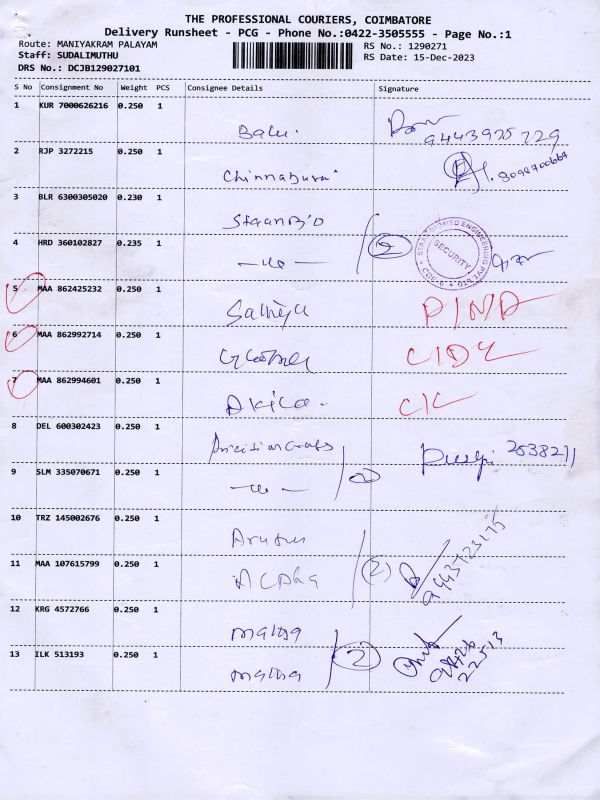 THE PROFESSIONAL COURIERS, COIMBATORE
Delivery Runsheet - PCG - Phone No.:0422-3505555 - Page No.:1
Route: MANIYAKRAM PALAYAM RS No.: 1290271
Staff: SUDALIMUTHU RS Date: 15-Dec-2023
DRS No.: DCJB129027101
S No Consignment No Weight PCS Consignee Details Signature
1 KUR 7000626216 0.250 1
Balu. 9443925729
2 RJP 3272215 0.250 1
Chinnadurai
3 BLR 6300305020 0.230 1
4 HRD 360102827 0.235 1
SECURITY
5 MAA 862425232 0.250 1
Sathiya
6 MAA 862992714 0.250 1
7 MAA 862994601 0.250 1
Akila
8 DEL 600302423 0.250 1
2538211
9 SLM 335070671 0.250 1
10 TRZ 145002676 0.250 1
11 MAA 107615799 0.250 1
Alpha (2)
12 KRG 4572766 0.250 1
13 ILK 513193 0.250 1
2
22513